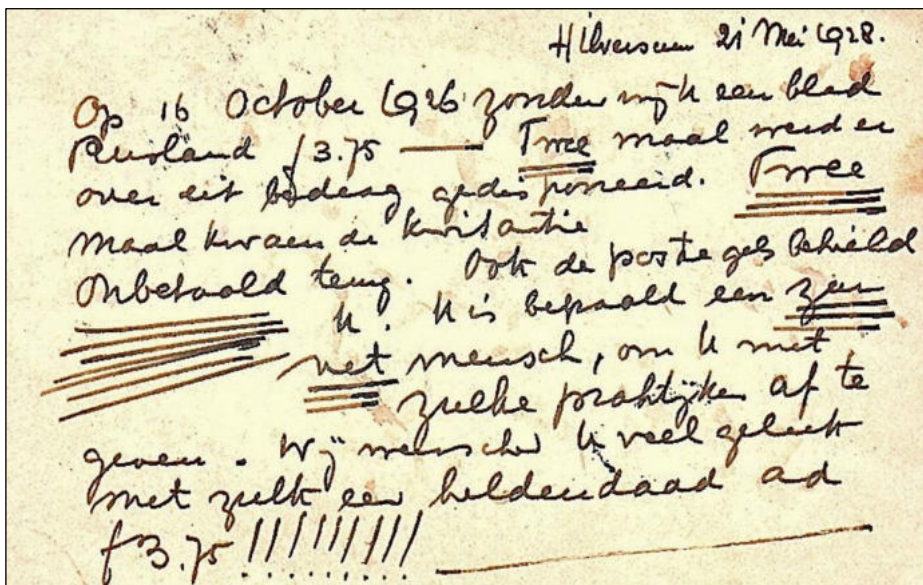 Hilversum 21 Mei 1928.
Op 16 October 1926 zonden wij U een blad
Rusland f 3.75 —— Twee maal werd er
over dit bedrag gedisponeerd. Twee
maal kwam de kwitantie
Onbetaald terug. Ook de postzegels behield
U. U is bepaald een zeer
net mensch, om U met
zulke praktijken af te
geven. Wij wenschen U veel geluk
met zulk een heldendaad ad
f 3.75 !!!!!!!!! ——